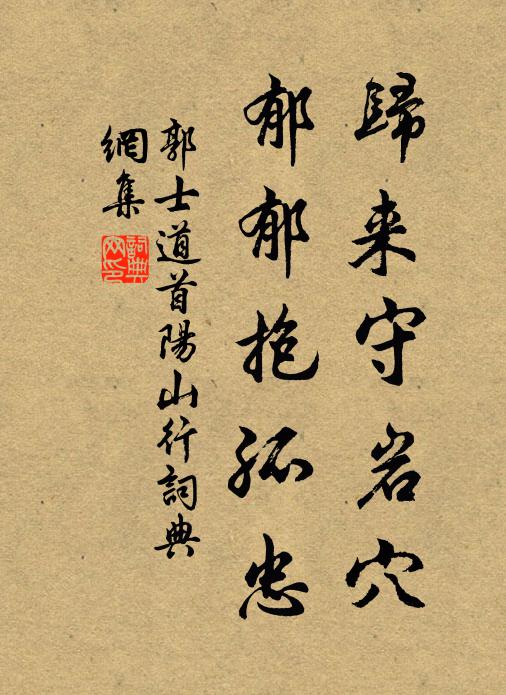 歸来守岩穴
郁郁抱孤忠
郭士道首陽山行詞典
網集
詞典
网印